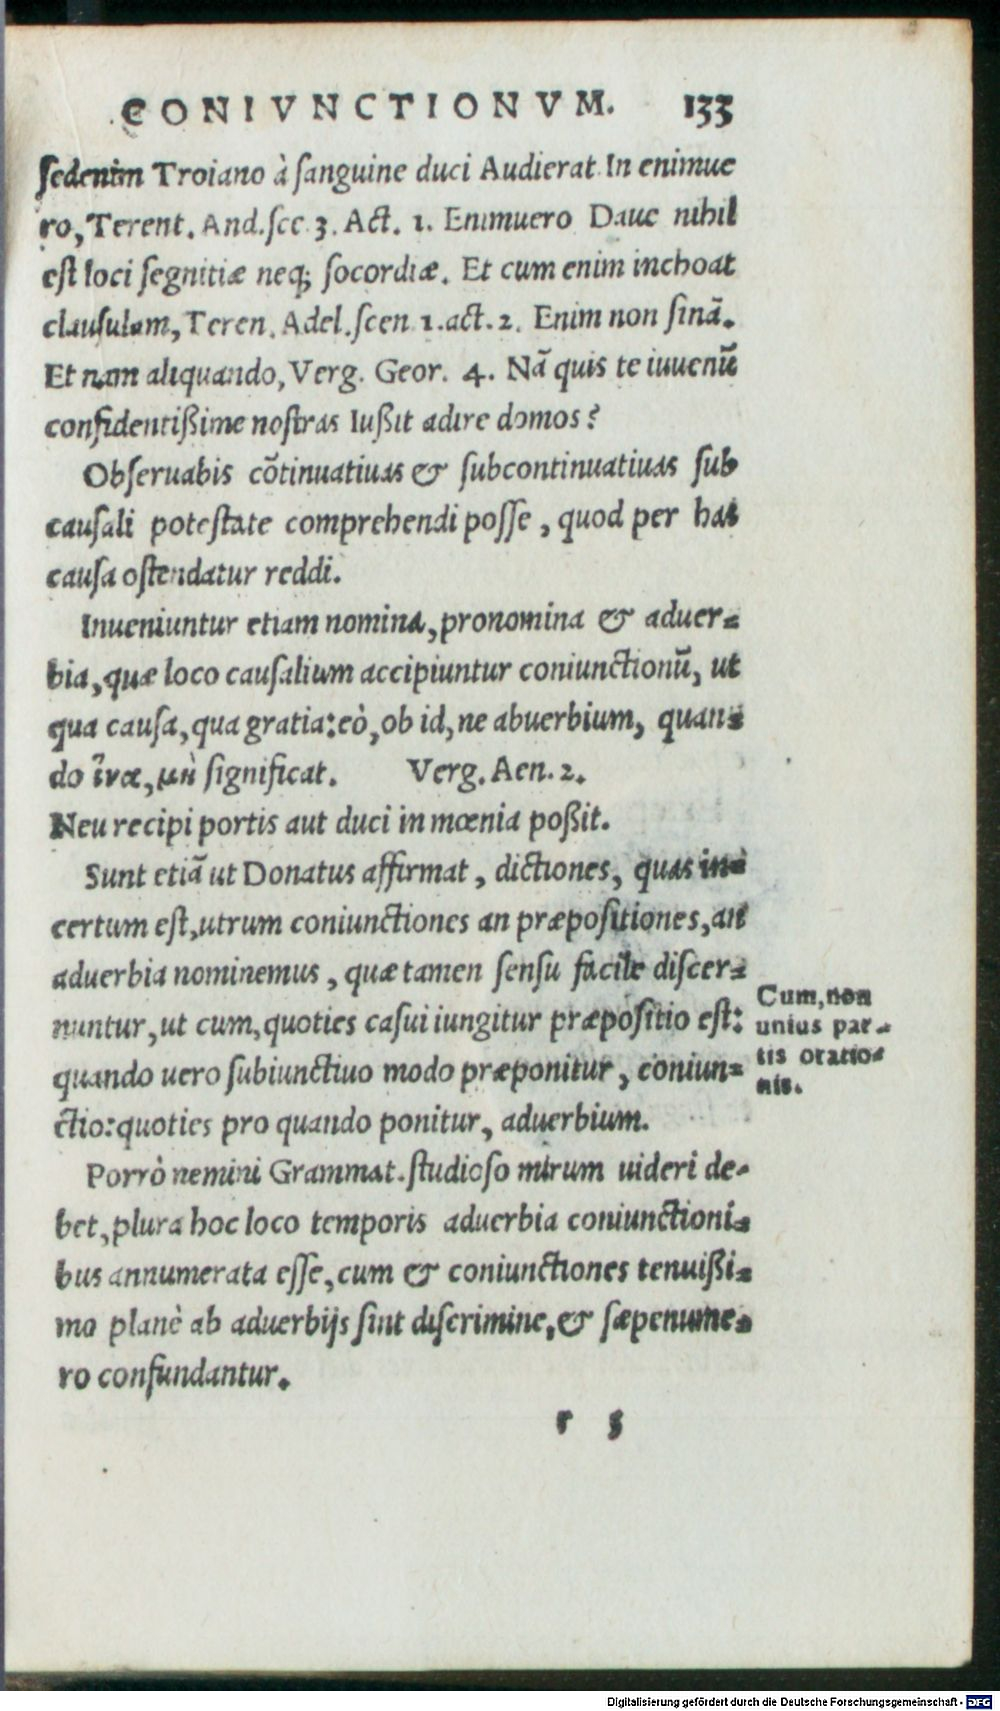 CONIVNCTIONVM. 133
sedenim Troiano à sanguine duci Audierat. In enimue
ro, Terent. And. sce. 3. Act. 1. Enimuero Daue nihil
est loci segnitiæ neq; socordiæ. Et cum enim inchoat
clausulam, Teren. Adel. scen. 1. act. 2. Enim non sinā.
Et nam aliquando, Verg. Geor. 4. Nā quis te iuuenū
confidentißime nostras Iußit adire domos?
Obseruabis cōtinuatiuas & subcontinuatiuas sub
causali potestate comprehendi posse, quod per has
causa ostendatur reddi.
Inueniuntur etiam nomina, pronomina & aduer-
bia, quæ loco causalium accipiuntur coniunctionū, ut
qua causa, qua gratia: eò, ob id, ne abuerbium, quan-
do ἵνα, μὴ significat. Verg. Aen. 2.
Neu recipi portis aut duci in mœnia poßit.
Sunt etiā ut Donatus affirmat, dictiones, quas in-
certum est, utrum coniunctiones an præpositiones, an
aduerbia nominemus, quæ tamen sensu facile discer-
nuntur, ut cum, quoties casui iungitur præpositio est:
quando uero subiunctiuo modo præponitur, coniun-
ctio: quoties pro quando ponitur, aduerbium.
Cum, non
unius par-
tis oratio-
nis.
Porrò nemini Grammat. studioso mirum uideri de-
bet, plura hoc loco temporis aduerbia coniunctioni-
bus annumerata esse, cum & coniunctiones tenuißi-
mo planè ab aduerbijs sint discrimine, & sæpenume-
ro confundantur.
r 5
Digitalisierung gefördert durch die Deutsche Forschungsgemeinschaft - DFG